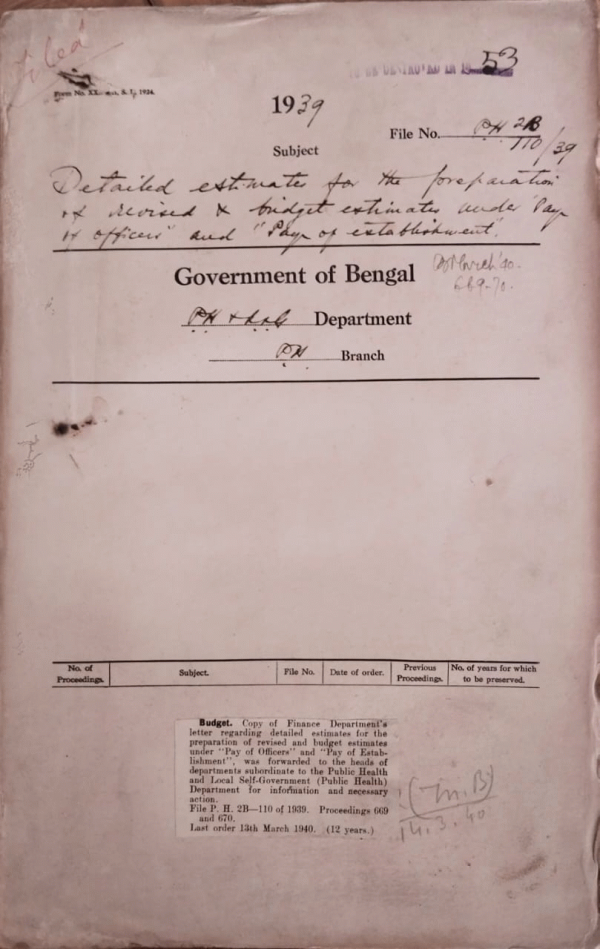 Filed
TO BE DESTROYED IN 1953
1939
File No. PH 2B
110/39
Subject
Detailed estimates for the preparation
of revised & budget estimates under "Pay
of officers" and "Pay of establishment".
Government of Bengal
March '40.
669-70.
PH & LSG Department
PH Branch
No. of Proceedings. Subject. File No. Date of order. Previous Proceedings. No. of years for which to be preserved.
Budget. Copy of Finance Department's
letter regarding detailed estimates for the
preparation of revised and budget estimates
under "Pay of Officers" and "Pay of Estab-
lishment", was forwarded to the heads of
departments subordinate to the Public Health
and Local Self-Government (Public Health)
Department for information and necessary
action.
File P. H. 2B—110 of 1939. Proceedings 669
and 670.
Last order 13th March 1940. (12 years.)
14.3.40